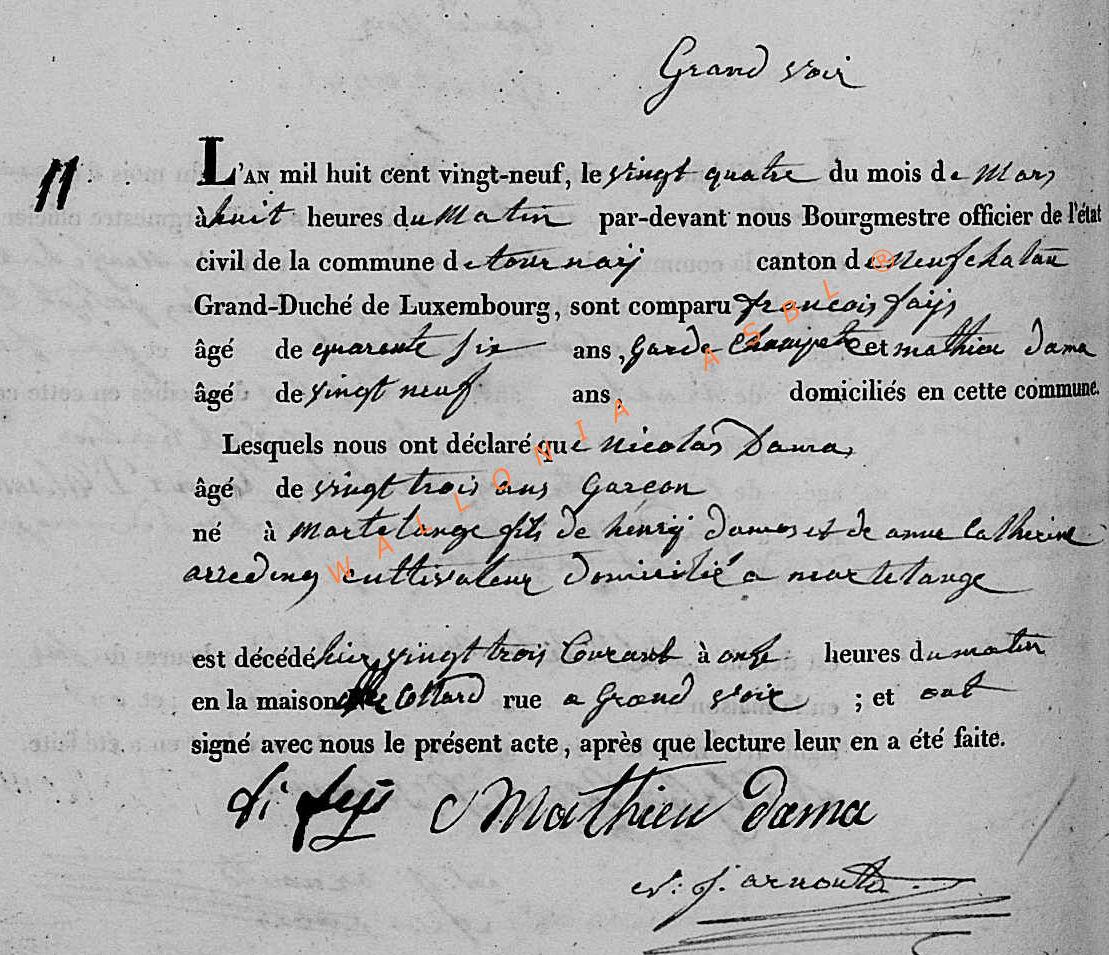 Grand voir
11.
L'AN mil huit cent vingt-neuf, le vingt quatre du mois de Mars
à huit heures du Matin par-devant nous Bourgmestre officier de l'état
civil de la commune de tournaij canton de Neufchatau
Grand-Duché de Luxembourg, sont comparu francois faijs
âgé de quarente six ans, Garde Champetre et mathieu dama
âgé de vingt neuf ans, domiciliés en cette commune.
Lesquels nous ont déclaré que nicolas Dama,
âgé de vingt trois ans Garcon
né à Martelange fils de henrij damas et de anne Catherine
arreding cultivateur domicilié a martelange
est décédé hier vingt trois Courant à onze heures du matin
en la maison Collard rue a Grand voir ; et ont
signé avec nous le présent acte, après que lecture leur en a été faite.
Mathieu dama
j. arnould
WALLONIA ASBL ®